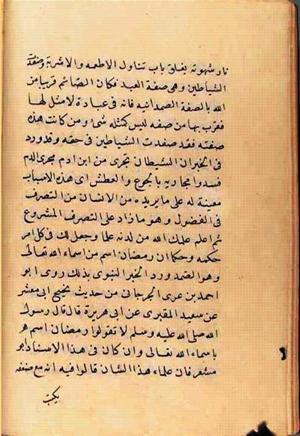 نار شهوته بغلق باب تناول الاطعمه والاشربه وصفد
الشياطين وهى صفة العبد فكان الصائم قريبا من
الله بالصفة الصمدانيه فانه فى عبادة لا مثل لها
فقرب بها من صفه ليس كمثله شئ ومن كانت هذه
صفته فقد صفدت الشياطين فى حقه وقد ورد
فى الخبر ان الشيطان يجرى من ابن ادم مجرى الدم
فسدوا مجاريه بالجوع والعطش اى هذه الاسباب
معينة له على ما يريده من الانسان من التصرف
فى الفضول وهو ما زاد على التصرف المشروع
ثم اعلم علمك الله من لدنه علما وجعل لك فى كل امر
حكمه وحكما ان رمضان اسم من اسماء الله تعالى
وهو الصمد ورد الخبر النبوى بذلك روى ابو
احمد بن عدى الجرجانى من حديث نجيح ابى معشر
عن سعيد المقبرى عن ابى هريرة قال قال رسول
الله صلى الله عليه وسلم لا تقولوا رمضان فان رمضان اسم
باسماء الله تعالى وان كان فى هذا الاسناد ابو
معشر فان علماء هذا الشان قالوا فيه انه مع ضعفه
يكتب